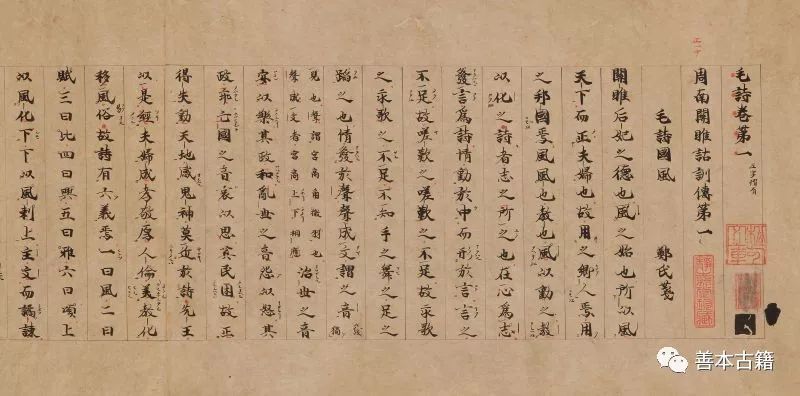 毛詩卷第一
周南關雎詁訓傳第一
毛詩國風 鄭氏箋
關雎后妃之德也風之始也所以風
天下而正夫婦也故用之鄉人焉用
之邦國焉風風也教也風以動之教
以化之詩者志之所之也在心為志
發言為詩情動於中而形於言言之
不足故嗟歎之嗟歎之不足故永歌
之永歌之不足不知手之舞之足之
蹈之也情發於聲聲成文謂之音
見也聲謂宮商角徵羽也
聲成文者宮商上下相應
治世之音
安以樂其政和亂世之音怨以怒其
政乖亡國之音哀以思其民困故正
得失動天地感鬼神莫近於詩先王
以是經夫婦成孝敬厚人倫美教化
移風俗故詩有六義焉一曰風二曰
賦三曰比四曰興五曰雅六曰頌上
以風化下下以風刺上主文而譎諫
善本古籍